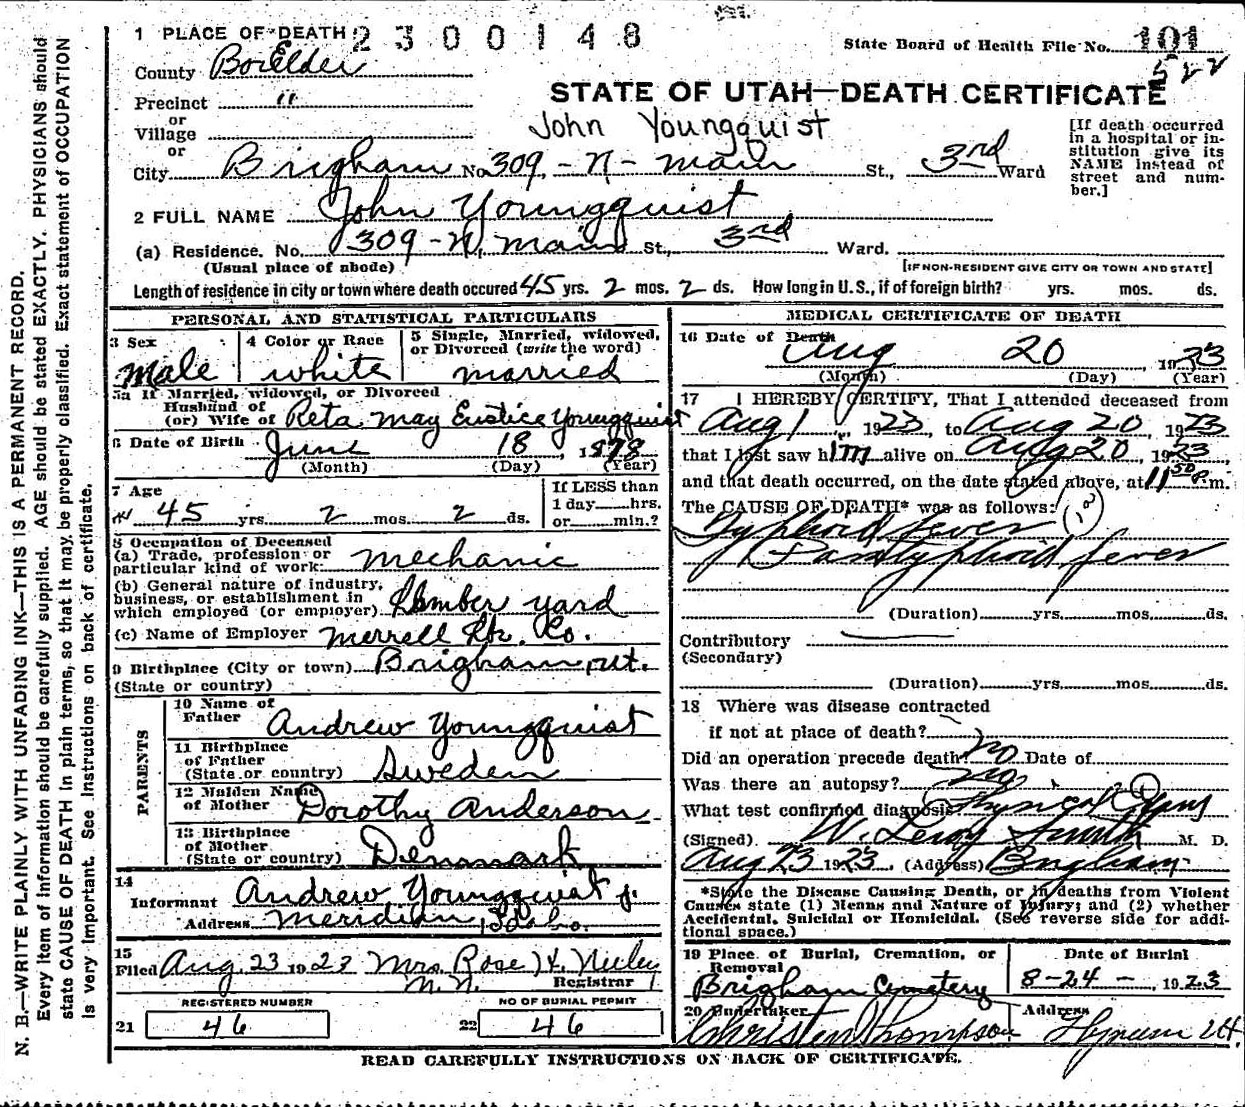 1 PLACE OF DEATH 2300148
State Board of Health File No. 101
522
County BoxElder
Precinct "
or
Village
or
STATE OF UTAH—DEATH CERTIFICATE
John Youngquist
City Brigham No 309, - N - Main St., 3rd Ward
[If death occurred in a hospital or institution give its NAME instead of street and number.]
2 FULL NAME John Youngquist
(a) Residence. No. 309 - N, Main St., 3rd Ward.
(Usual place of abode) [IF NON-RESIDENT GIVE CITY OR TOWN AND STATE]
Length of residence in city or town where death occured 45 yrs. 2 mos. 2 ds. How long in U.S., if of foreign birth? yrs. mos. ds.
PERSONAL AND STATISTICAL PARTICULARS
3 Sex
Male
4 Color or Race
white
5 Single, Married, widowed, or Divorced (write the word)
married
5a If Married, widowed, or Divorced
Husband of
(or) Wife of Reta May Eustice Youngquist
6 Date of Birth June 18, 1878
(Month) (Day) (Year)
7 Age
45 yrs. 2 mos. 2 ds.
If LESS than
1 day hrs.
or min.?
8 Occupation of Deceased
(a) Trade, profession or
particular kind of work: mechanic
(b) General nature of industry,
business, or establishment in
which employed (or employer) Lumber yard
(c) Name of Employer Merrell Lbr. Co.
9 Birthplace (City or town) Brigham, ut.
(State or country)
PARENTS
10 Name of
Father Andrew Youngquist
11 Birthplace
of Father
(State or country) Sweden
12 Maiden Name
of Mother Dorothy Anderson
13 Birthplace
of Mother
(State or country) Denmark
14
Informant Andrew Youngquist jr.
Address Meridian, Idaho.
15
Filed Aug. 23 1923 Mrs. Rose H. Neeley
Registrar
REGISTERED NUMBER
21 46
NO OF BURIAL PERMIT
22 46
MEDICAL CERTIFICATE OF DEATH
16 Date of Death
Aug 20, 1923
(Month) (Day) (Year)
17 I HEREBY CERTIFY, That I attended deceased from
Aug 1, 1923, to Aug 20, 1923
that I last saw him alive on Aug 20, 1923,
and that death occurred, on the date stated above, at 11 50 P.m.
The CAUSE OF DEATH* was as follows:
Typhoid fever
Paratyphoid fever
(Duration) yrs. mos. ds.
Contributory
(Secondary)
(Duration) yrs. mos. ds.
18 Where was disease contracted
if not at place of death?
Did an operation precede death? no Date of
Was there an autopsy? no
What test confirmed diagnosis? Physical
(Signed) W. Leroy Smith M. D.
Aug 23 1923 (Address) Brigham
*State the Disease Causing Death, or in deaths from Violent
Causes state (1) Means and Nature of Injury; and (2) whether
Accidental, Suicidal or Homicidal. (See reverse side for additional space.)
19 Place of Burial, Cremation, or
Removal
Brigham Cemetery
Date of Burial
8-24-, 1923
20 Undertaker
Christen Thompson
Address
Hyrum Ut.
READ CAREFULLY INSTRUCTIONS ON BACK OF CERTIFICATE.
N. B.—WRITE PLAINLY WITH UNFADING INK—THIS IS A PERMANENT RECORD.
Every item of information should be carefully supplied. AGE should be stated EXACTLY. PHYSICIANS should
state CAUSE OF DEATH in plain terms, so that it may be properly classified. Exact statement of OCCUPATION
is very important. See instructions on back of certificate.